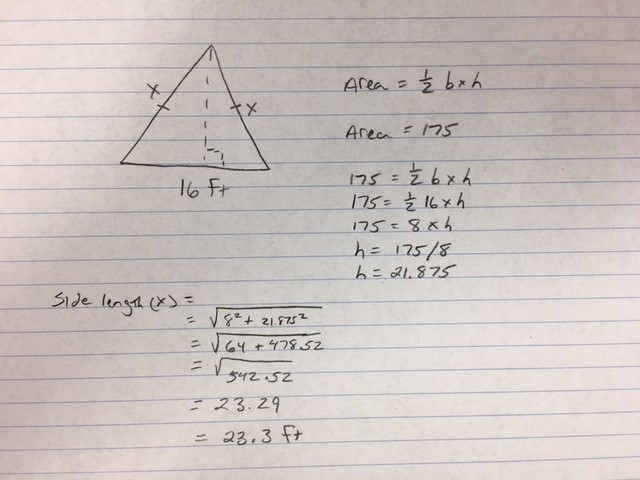 x
x
16 ft
Area = 1/2 b x h
Area = 175
175 = 1/2 b x h
175 = 1/2 16 x h
175 = 8 x h
h = 175/8
h = 21.875
Side length (x) =
= √8² + 21.875²
= √64 + 478.52
= √542.52
= 23.29
= 23.3 ft